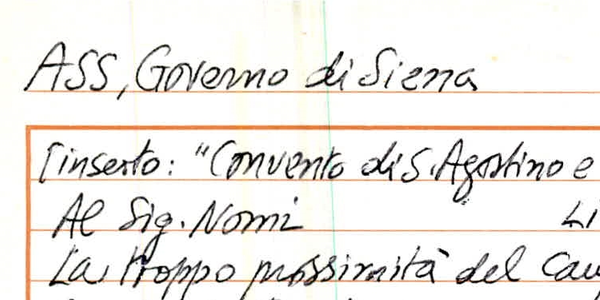 ASS, Governo di Siena
[inserto: "Convento di S. Agostino e
Al Sig. Nomi Li
La troppo prossimità del Cau